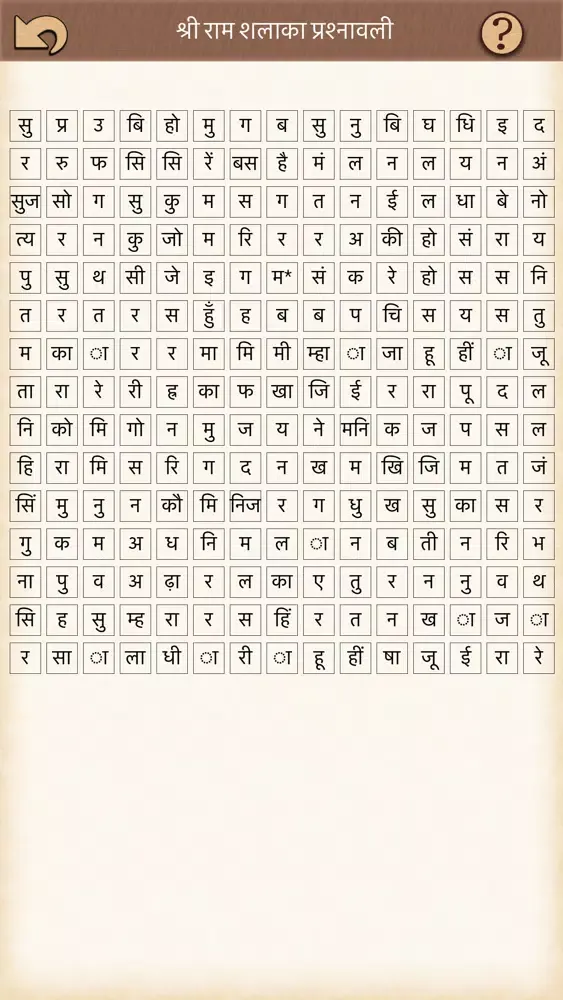 श्री राम शलाका प्रश्नावली
?
सु प्र उ बि हो मु ग ब सु नु बि घ धि इ द
र रु फ सि सि रें बस है मं ल न ल य न अं
सुज सो ग सु कु म स ग त न ई ल धा बे नो
त्य र न कु जो म रि र र अ की हो सं रा य
पु सु थ सी जे इ ग म* सं क रे हो स स नि
त र त र स हुँ ह ब ब प चि स य स तु
म का ा र र मा मि मी म्हा ा जा हू हीं ा जू
ता रा रे री ह्र का फ खा जि ई र रा पू द ल
नि को मि गो न मु ज य ने मनि क ज प स ल
हि रा मि स रि ग द न ख म खि जि म त जं
सिं मु नु न कौ मि निज र ग धु ख सु का स र
गु क म अ ध नि म ल ा न ब ती न रि भ
ना पु व अ ढ़ा र ल का ए तु र न नु व थ
सि ह सु म्ह रा र स हिं र त न ख ा ज ा
र सा ा ला धी ा री ा हू हीं षा जू ई रा रे